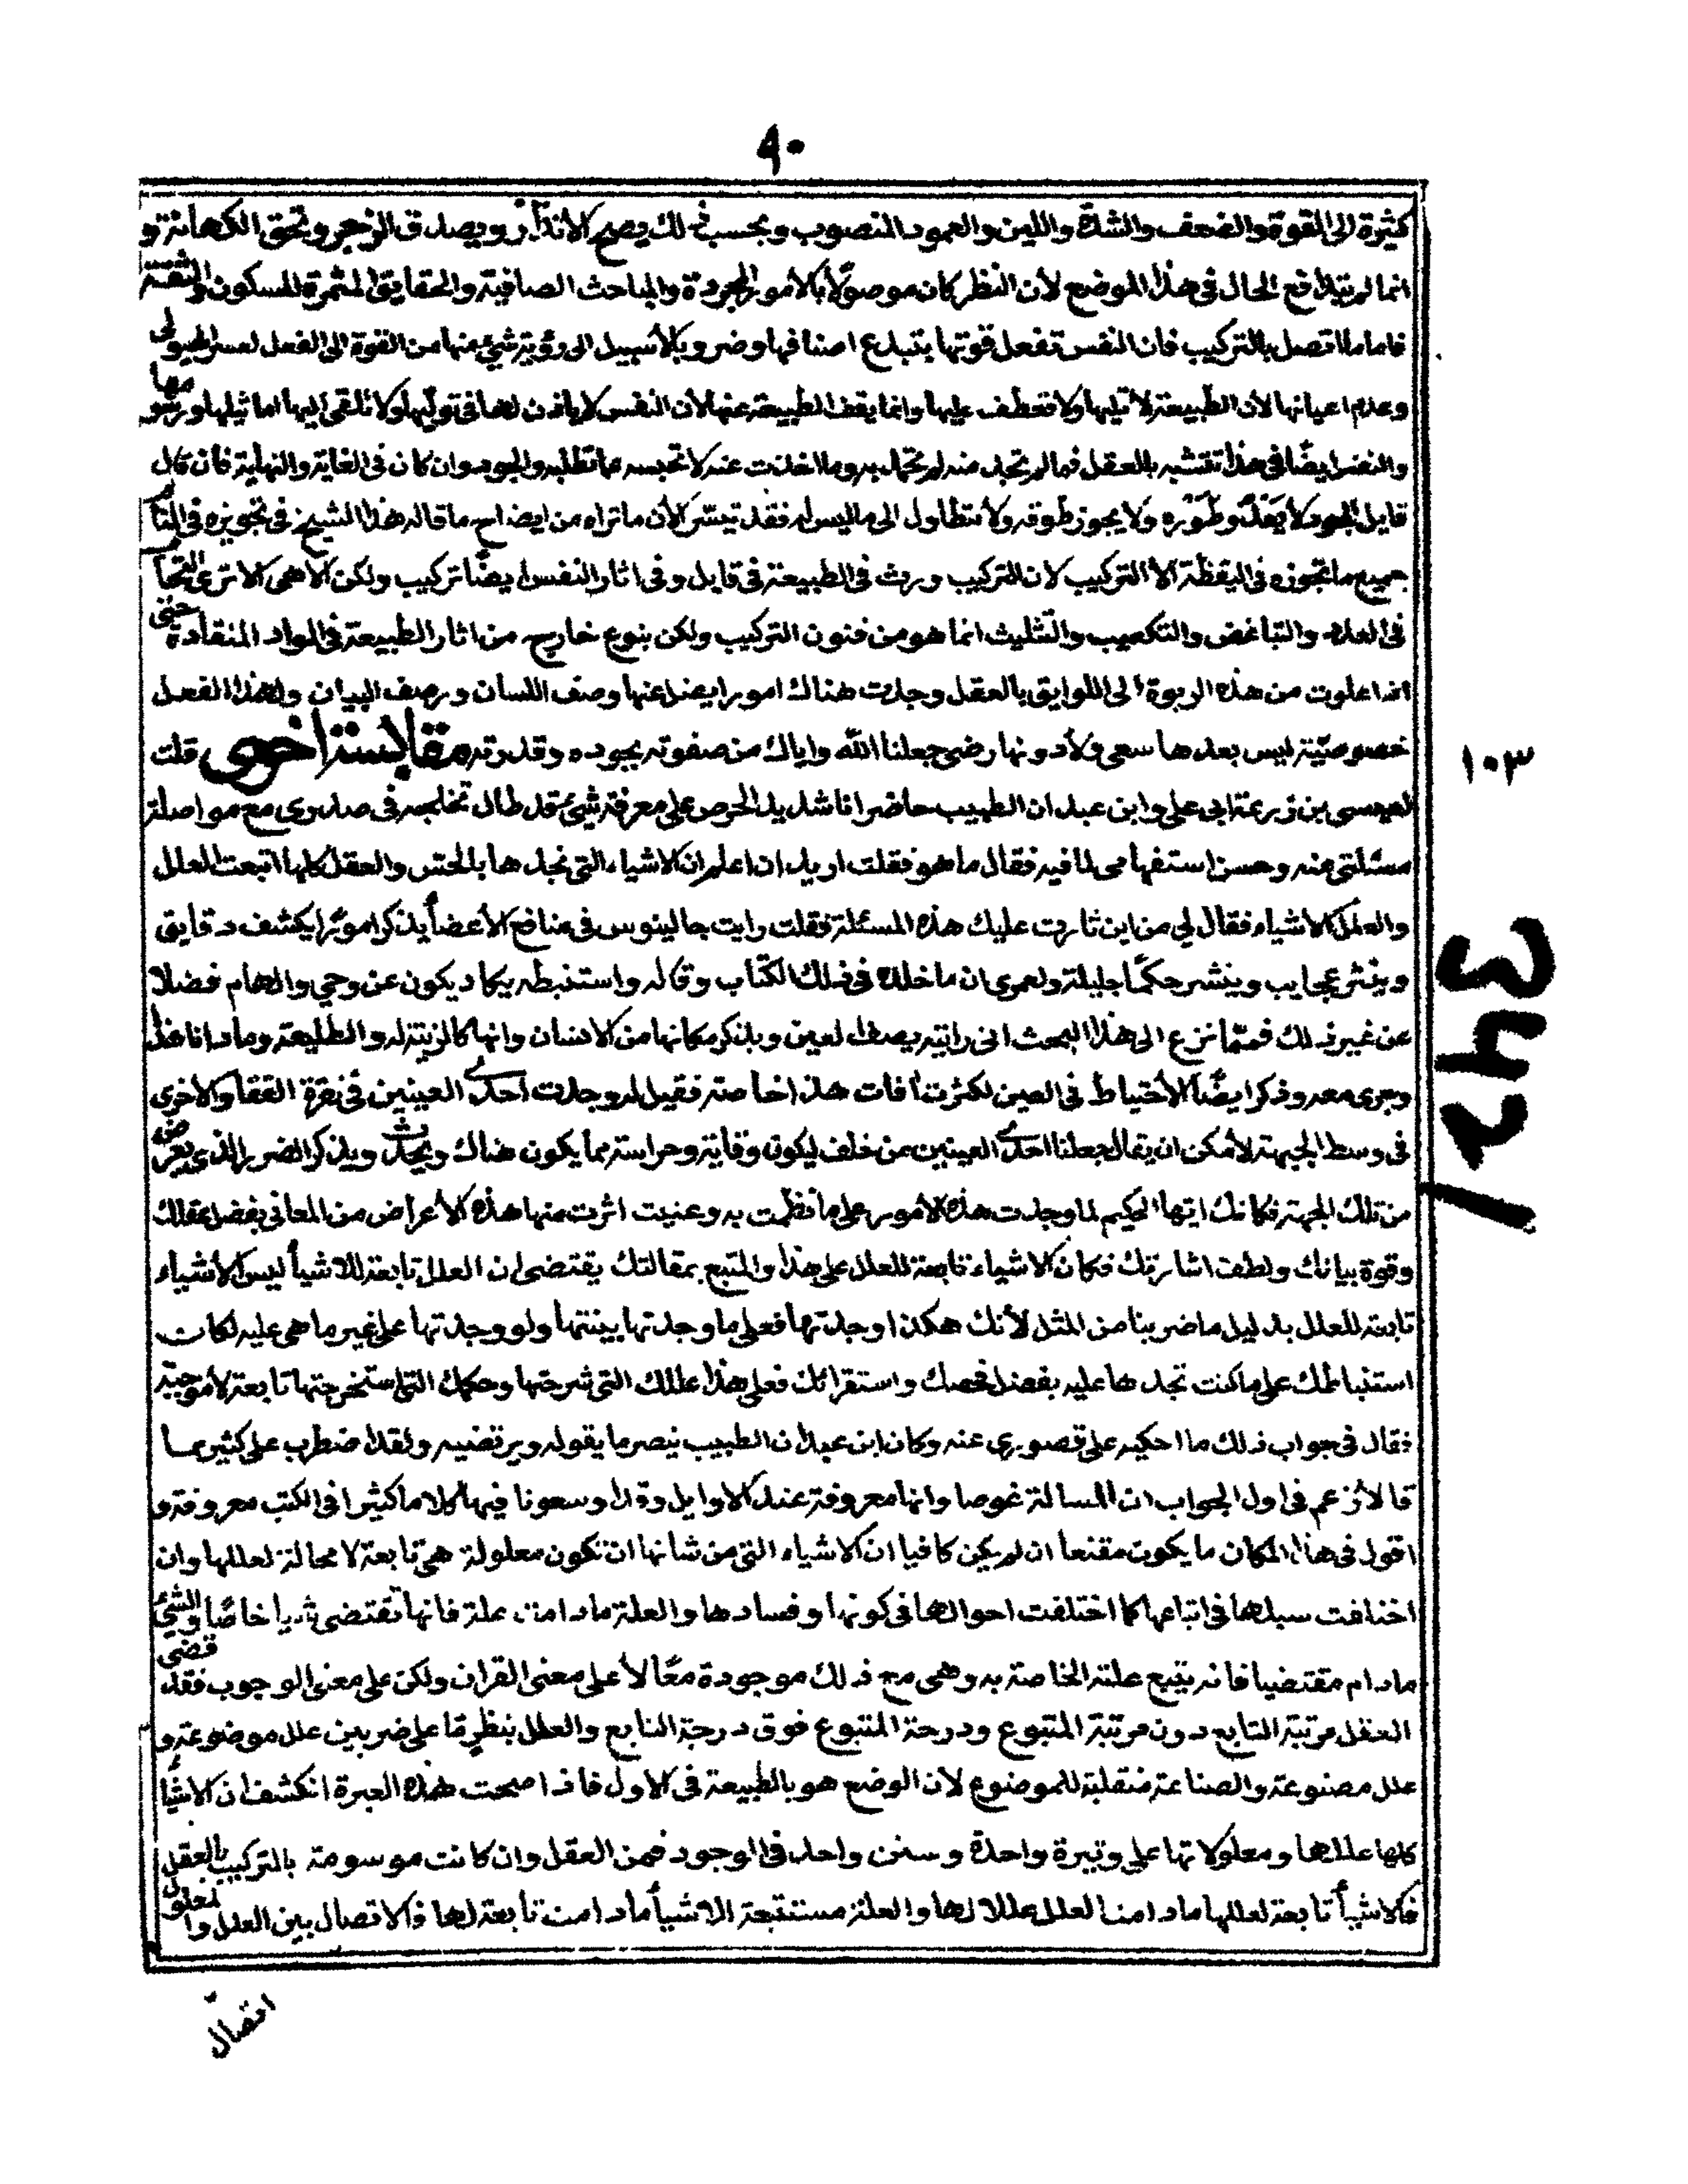 ٩٠
كثيرة الى القوة والضعف والشدة واللين والعمود المنصوب وبحسب ذلك يصح الأنذار ويصدق الزجر وتحق الكهانة و
انما لم يتدافع الحال فى هذا الموضع لأن النظر كان موصولا بالأمور المجردة والمباحث الصافية والحقايق المثمرة للسكون والثقة
فاما ما اتصل بالتركيب فان النفس تفعل قوتها بتبدع اصنافها وضروبها لا سبيل الى رؤية شئ منها من القوة الى الفعل لعسر الهيولى
وعدم اعيانها لأن الطبيعة لا تليها ولا تعطف عليها وانما يقف الطبيعة عنها لأن النفس لا ياذن لها فى توليها ولا تلقى اليها اماثيلها ورسومها
والنفس ايضا فى هذا تتشبه بالعقل فما لم تجد منه لم تجد به وما اخذت عنه لا تحبسه عما تطلبه والجود وان كان فى الغاية والنهاية فان كل
قابل الجود لا يعدو طوره ولا يجوز طوقه ولا يتطاول الى ما ليس له فقد تيسر الأن ما تراه من ايضاح ما قاله هذا الشيخ فى تجويزه فى المنام
جميع ما تجوزه فى اليقظة الا التركيب لان التركيب ورث فى الطبيعة فى قابل وفى اثار النفس ايضا تركيب ولكن الاهى الا ترى التجا
فى العدد والتباغض والتكعيب والتثليث انما هو من فنون التركيب ولكن بنوع خارج من اثار الطبيعة فى المواد المنقادة حتى
اذا علوت من هذه الربوة الى اللوايق بالعقل وجدت هناك امورا يضل عنها وصف اللسان ورصف البيان ولهذا الفصل
خصوصية ليس بعدها سعى ولا دونها رضى جعلنا الله واياك من صفوته بجوده وقدرته مقابسة اخرى قلت
لعيسى بن زرعة ابى على وابن عبدان الطبيب حاضر انا شديد الحرص على معرفة شئ قد طال تخلجه فى صدرى مع مواصلة
مسئلتى عنه وحسن استفهامى لما فيه فقال ما هو فقلت اريد ان اعلم ان الاشياء التى نجدها بالحس والعقل كلها اتبعت العلل
والعلل الاشياء فقال لى من اين ثارت عليك هذه المسئلة فقلت رايت جالينوس فى منافع الأعضاء يذكر امورا يكشف دقايق
وينثر عجايب وينشر حكما جليلة ولعمرى ان ما خلده فى ذلك الكتاب وقاله واستنبطه يكاد يكون عن وحي والهام فضلا
عن غير ذلك فمما نزع الى هذا البحث انى رايته يصف العين ويذكر مكانها من الانسان وانها كالزينة له والطليعة وما دانا هذا
وجرى معه وذكر ايضا الأحتياط فى العين لكثرت أفات هذا خاصة فقيل له وجدت احدى العينين فى نقرة القفا والأخرى
فى وسط الجبهة لأمكن ان يقال جعلنا احدى العينين من خلف ليكون وقاية وحراسة مما يكون هناك ويحدث ويذكر الضرر الذى يعرض
من تلك الجهة فكانك ايها الحكيم لما وجدت هذه الأمور على ما نظمت به وعنيت اثرت منها هذه الأعراض من المعانى بفضل عقلك
وقوة بيانك ولطف اشارتك فكان الاشياء تابعة للعلل على هذا والمتبع بمقالتك يقتضى ان العلل تابعة للاشيأ ليس الأشياء
تابعة للعلل بدليل ما ضربنا من المثل لأنك هكذا وجدتها فعلى ما وجدتها بينتها ولو وجدتها على غير ما هى عليه لكانت
استنباطك على ما كنت تجدها عليه بفضل فحصك واستقرائك فعلى هذا عللك التى شرحتها وحكمك التى استخرجتها تابعة لأموجبة
فقال فى جواب ذلك ما احكيه على قصورى عنه وكان ابن عبدان الطبيب ينصر ما يقوله ويرتضيه ولقد اضطرب على كثير مما
قالا زعم فى اول الجواب ان المسالة غوصا وانها معروفة عند الاوايل وقد اوسعونا فيها كلاما كثيرا فى الكتب معروفة و
اقول فى هذا المكان ما يكون مقنعا ان لم يكن كافيا ان الاشياء التى من شانها ان تكون معلولة هى تابعة لا محالة لعللها وان
اختلفت سبلها فى اتباعها كما اختلفت احوالها فى كونها وفسادها والعلة ما دامت علة فانها تقتضى شيا خاصا والشئ
ما دام مقتضيا فانه يتبع علته الخاصة به وهى مع ذلك موجودة معا لا على معنى القران ولكن على معنى الوجوب فقد قضى
العقل مرتبة التابع دون مرتبة المتبوع ودرجة المتبوع فوق درجة التابع والعلل بنظر ما على ضربين علل موضوعة و
علل مصنوعة والصناعة منقلبة للموضوع لان الوضع هو بالطبيعة فى الاول فاذا صحت هذه العبرة انكشف ان الاشيأ
كلها عللها ومعلولاتها على وتيرة واحدة وسنن واحد فى الوجود فمن العقل وان كانت موسومة بالتركيب بالعقل
فالاشيأ تابعة لعللها ما دامت العلل عللا لها والعلة مستتبعة الاشيأ ما دامت تابعة لها فالاتصال بين العلل والمعلول
اتصال
١٠٣